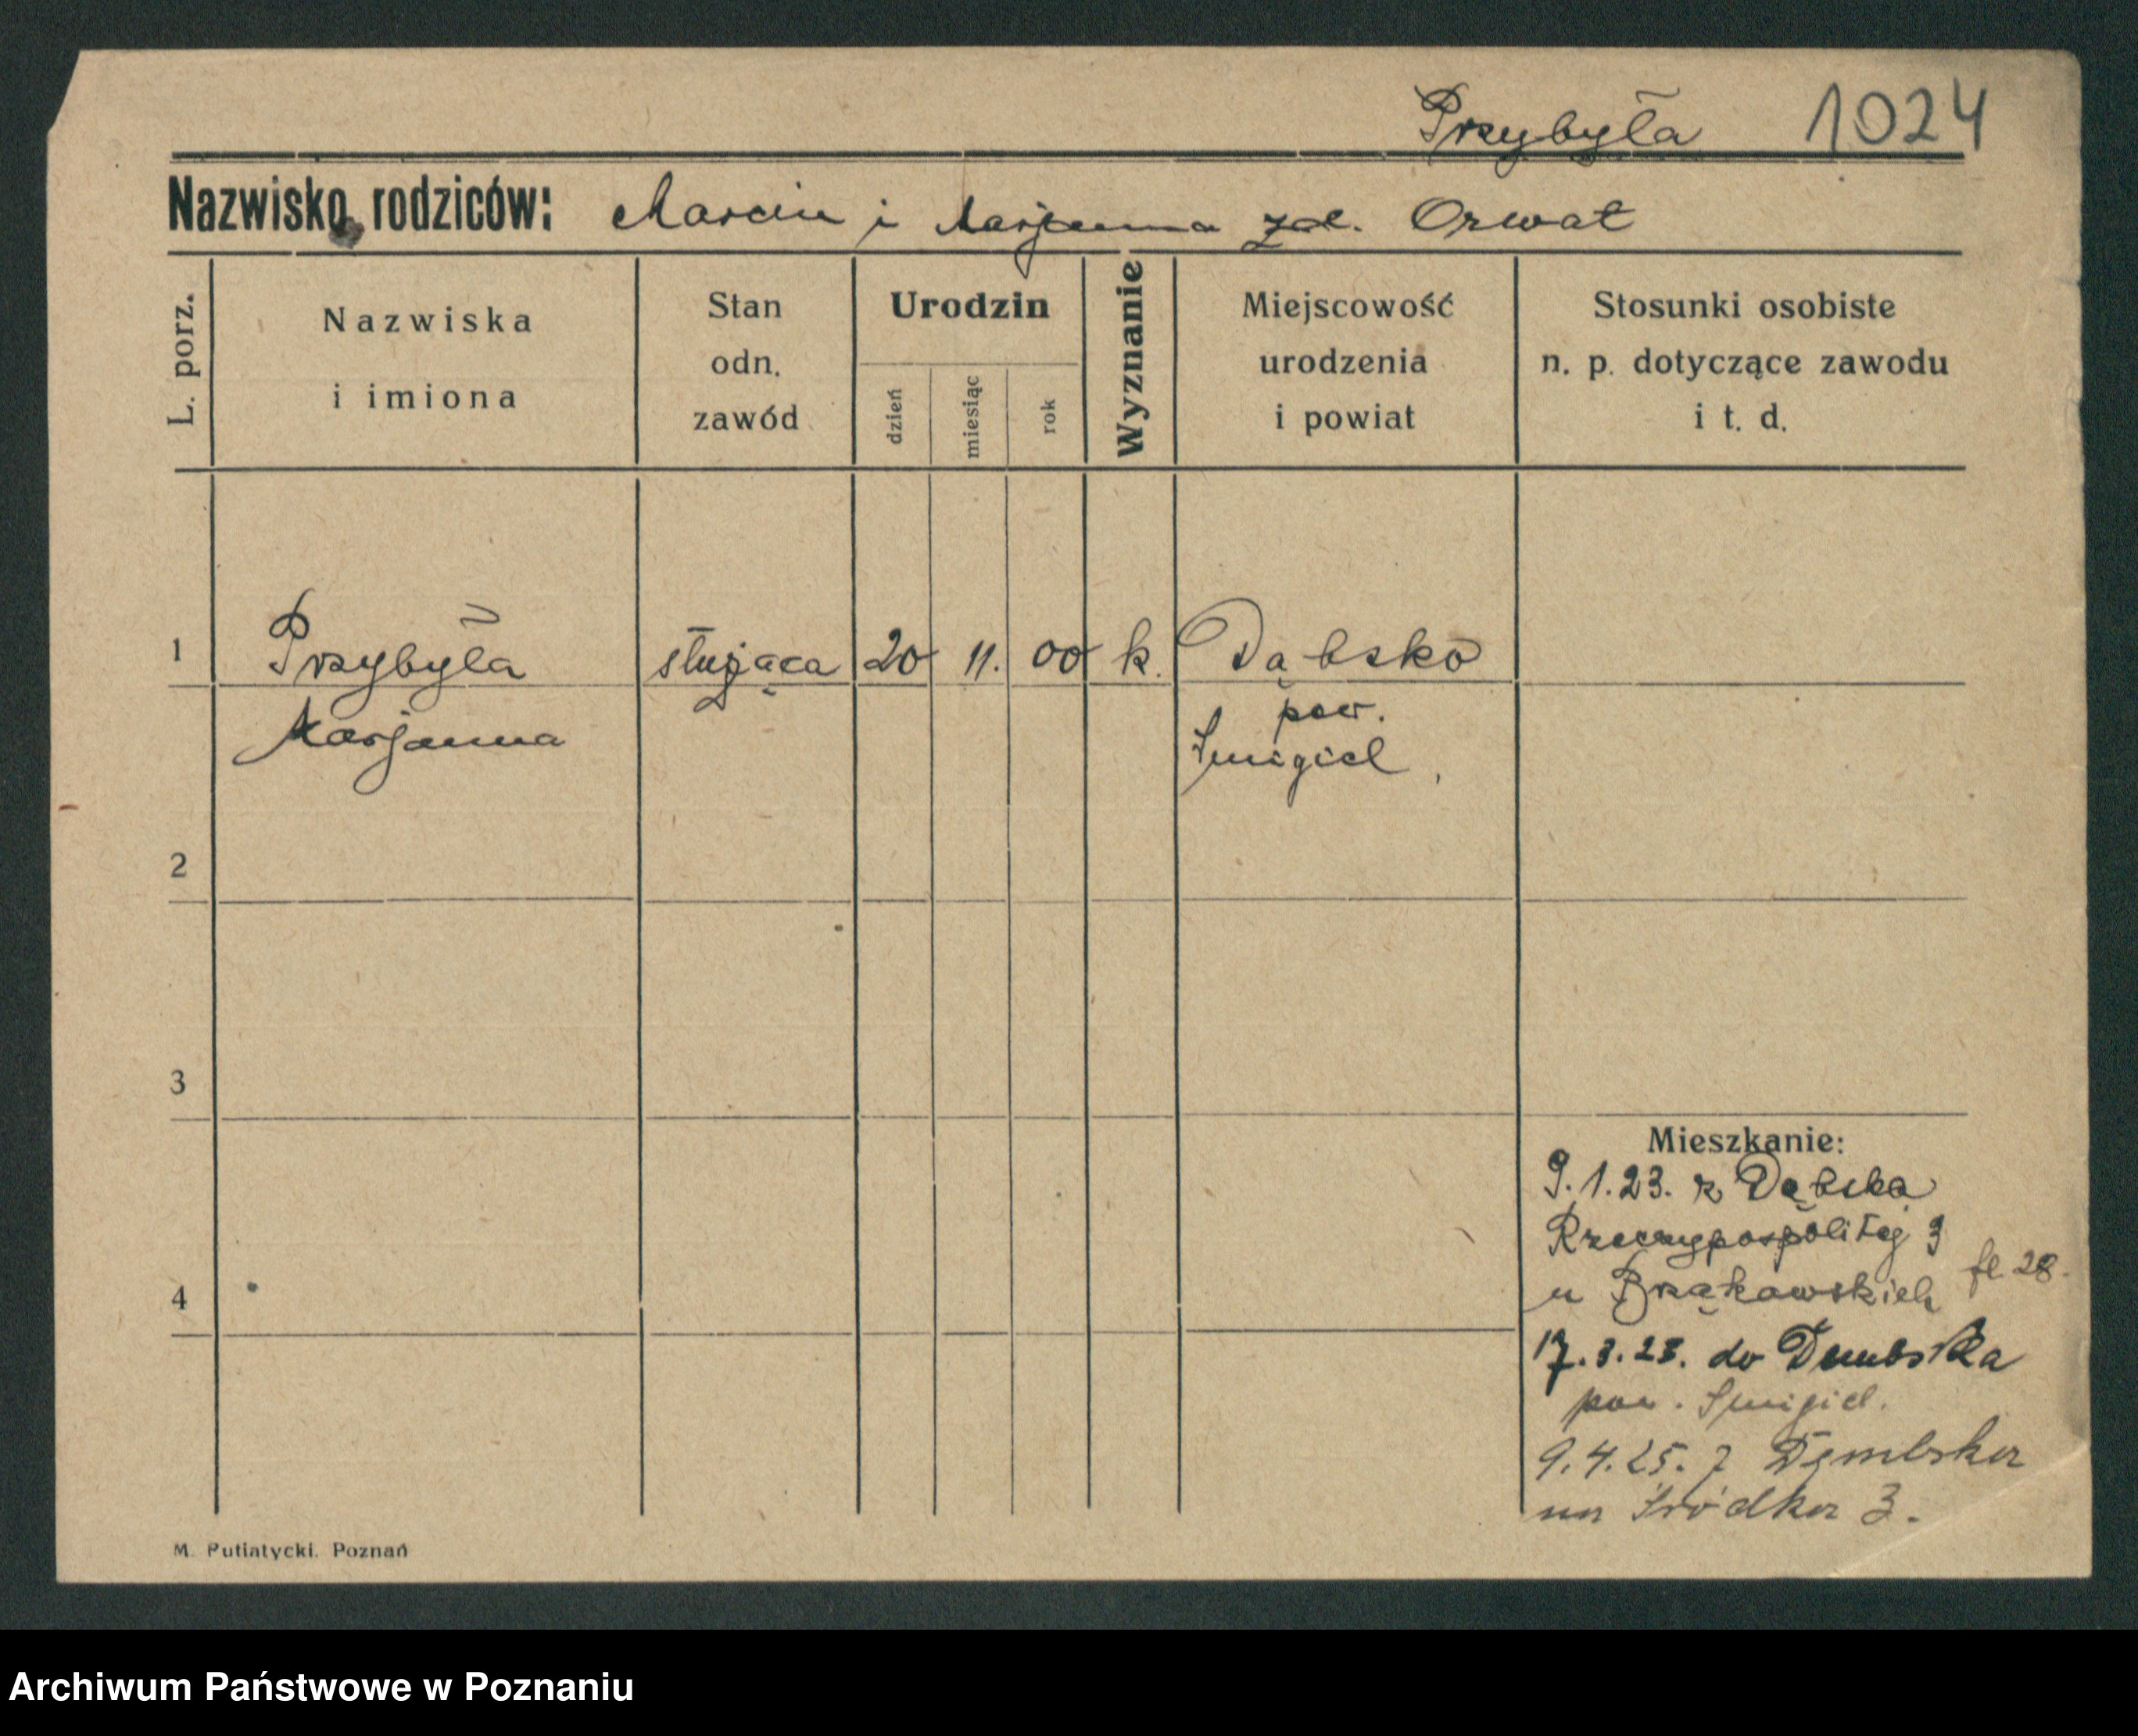 Przybyła 1024
Nazwisko rodziców: Marcin i Marjanna zd. Orwat
L. porz.
Nazwiska
i imiona
Stan
odn.
zawód
Urodzin
dzień
miesiąc
rok
Wyznanie
Miejscowość
urodzenia
i powiat
Stosunki osobiste
n. p. dotyczące zawodu
i t. d.
1 Przybyła służąca 20 11. 00 k. Dąbsko
Marjanna pow.
Śmigiel
2
3
4
Mieszkanie:
9.1.23. z Dąbska
Rzeczypospolitej 3
u Brzękowskich fl. 28.
17.3.23. do Dembska
pow. Śmigiel.
9.4.25. z Dembska
na Śródka 3.
M. Putiatycki. Poznań
Archiwum Państwowe w Poznaniu